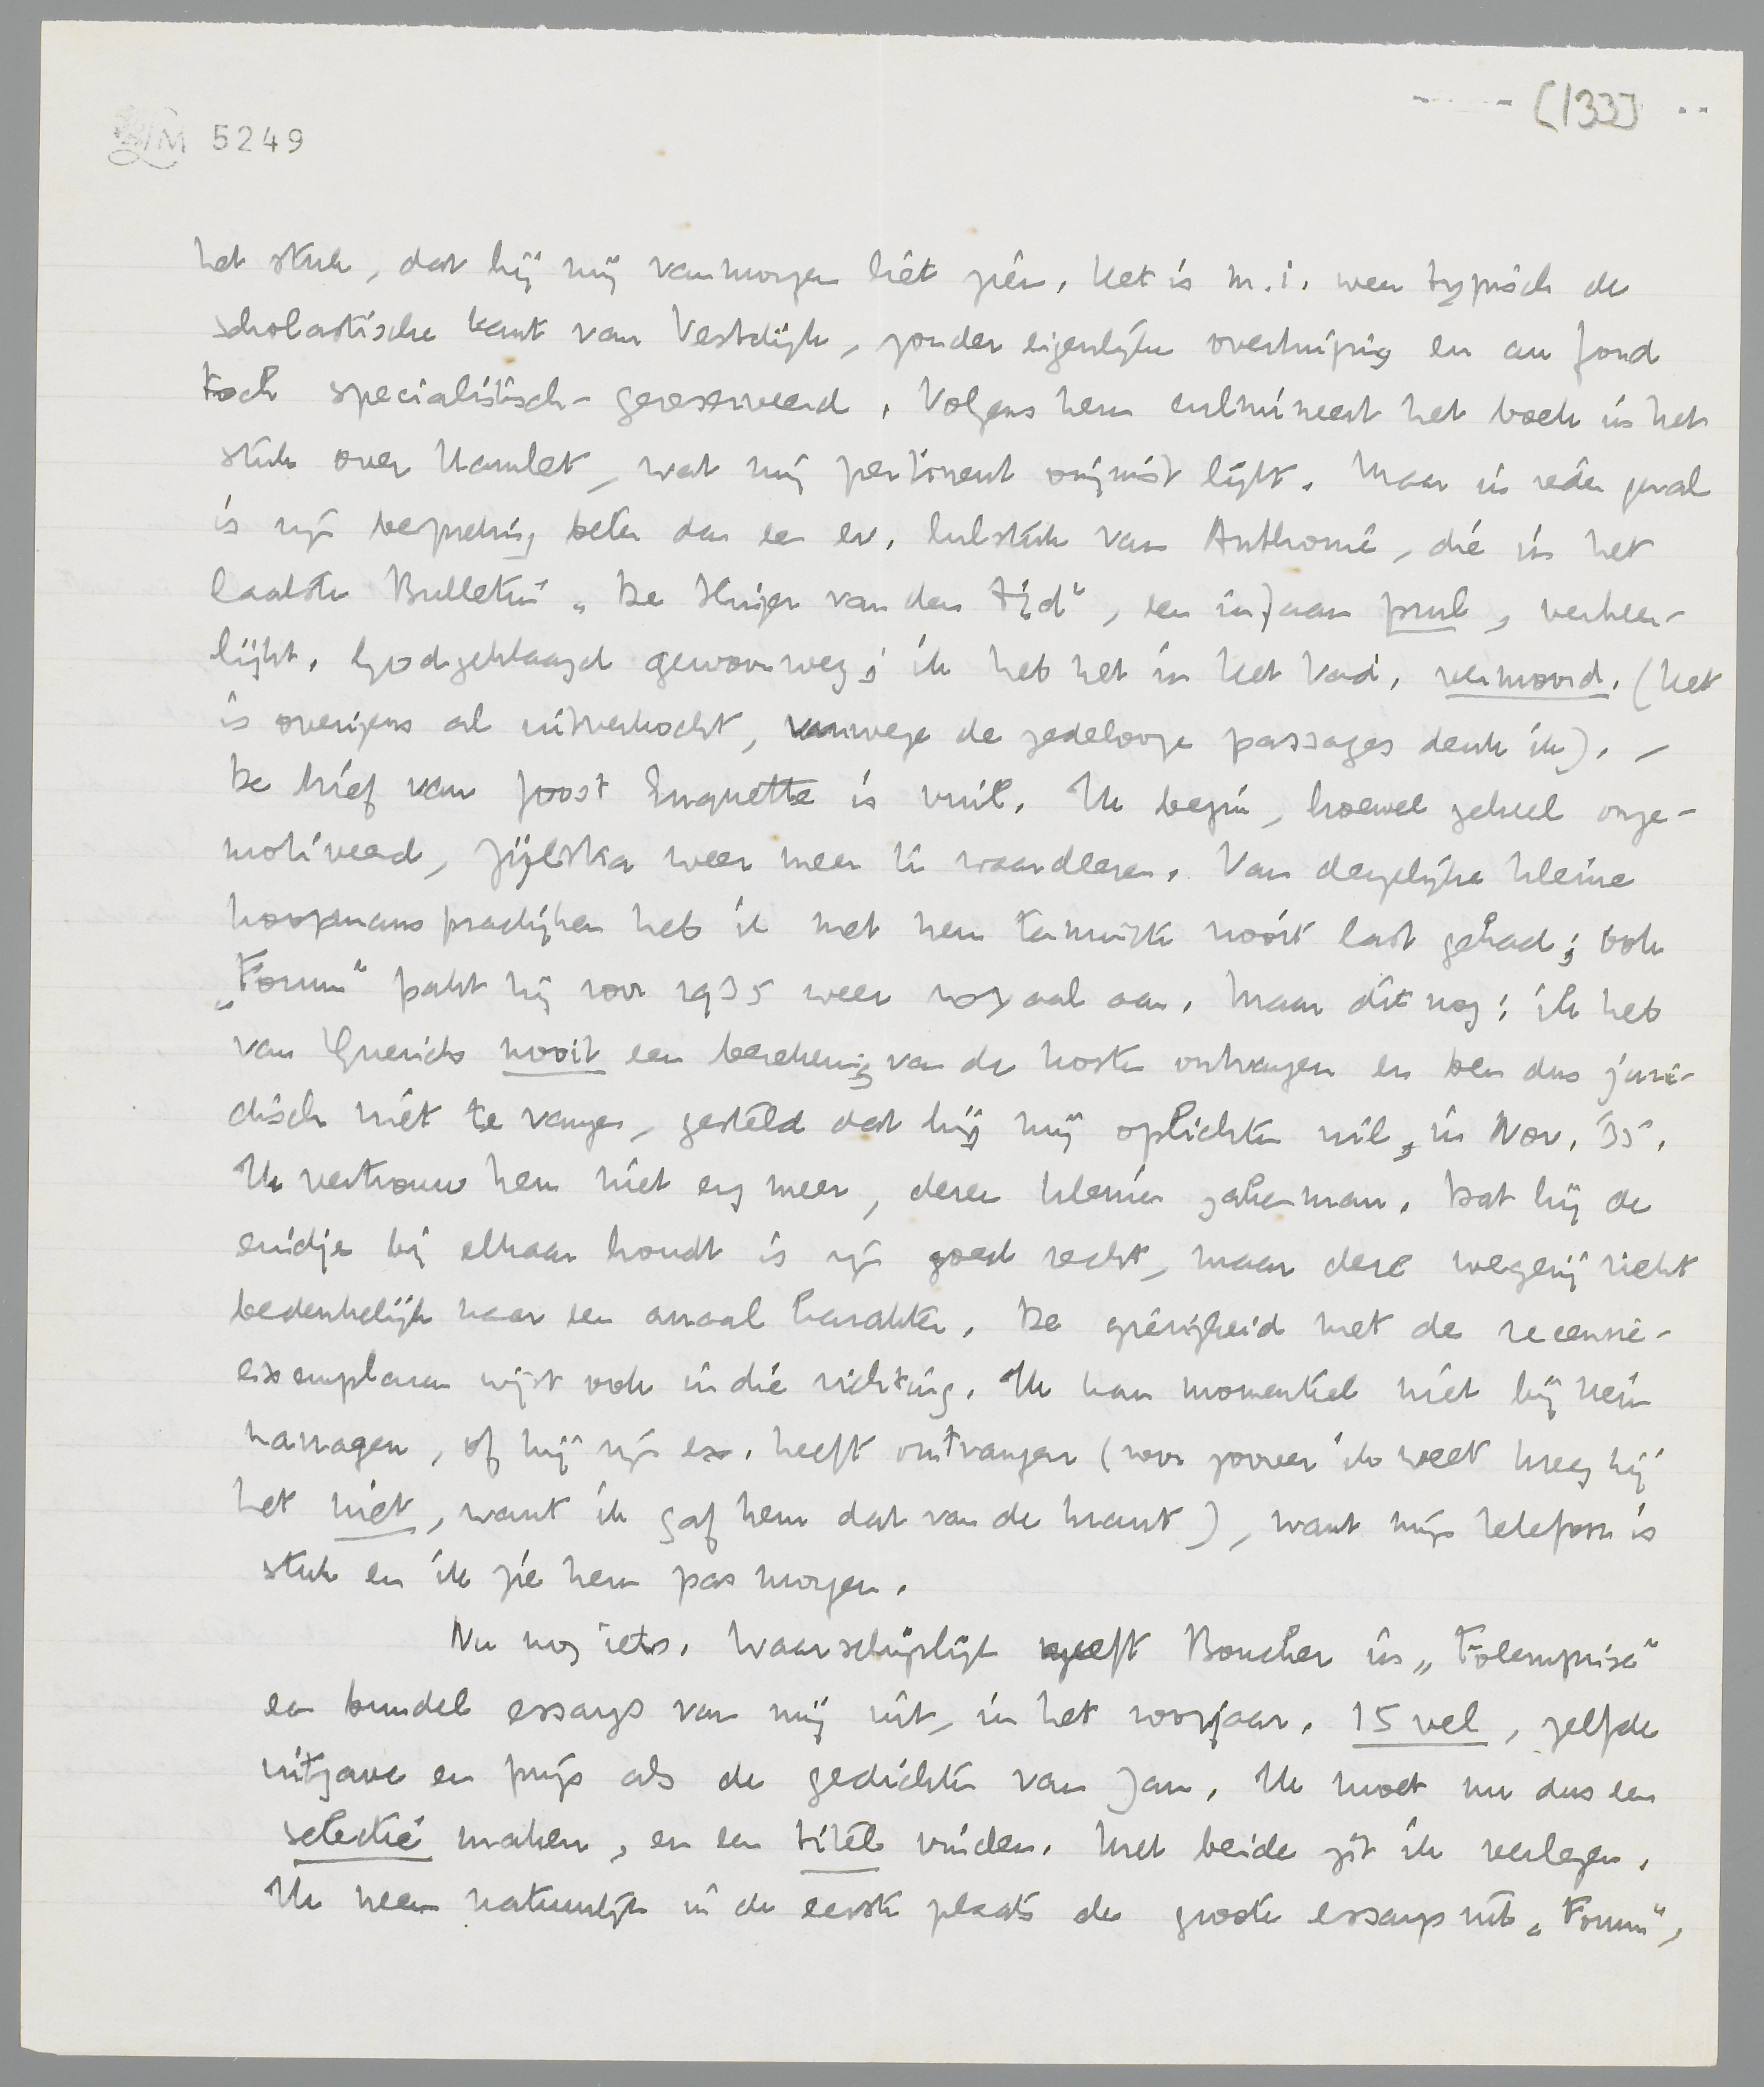 [133]
LM 5249
het stuk, dat hij mij vanmorgen liet zien. Het is m.i. weer typisch de
scholastische kant van Vestdijk, zonder eigenlijke overtuiging en au fond
toch specialistisch-gereserveerd. Volgens hem culmineert het boek in het
stuk over Hamlet, wat mij pertinent onjuist lijkt. Maar in ieder geval
is zijn bespreking beter dan een ev. lulstuk van Anthonie, die in het
laatste Bulletin „De Kluizenaar van den tijd“, een infaam prul, verheer-
lijkt. Godgeklaagd gewoonweg; ik heb het in Het Vad. vermoord. (Het
is overigens al uitverkocht, vanwege de zedelooze passages denk ik). –
De brief van Joost Enquette is vuil. Ik begin, hoewel geheel onge-
motiveerd, Zijlstra weer meer te waardeeren. Van dergelijke kleine
koopmanspractijken heb ik met hem tenminste nooit last gehad; ook
„Forum“ pakt hij voor 1935 weer royaal aan. Maar dit nog: ik heb
van Querido nooit een berekening van de kosten ontvangen en ben dus juri-
disch niet te vangen, gesteld dat hij mij oplichten wil, in Nov. '35.
Ik vertrouw hem niet erg meer, deze kleine zakenman. Dat hij de
eindjes bij elkaar houdt is zijn goed recht, maar deze wegerij riekt
bedenkelijk naar een anaal karakter. De gierigheid met de recensie-
exemplaren wijst ook in die richting. Ik kan momenteel niet bij Hein
navragen, of hij zijn ex. heeft ontvangen (voor zoover ik weet kreeg hij
het niet, want ik gaf hem dat van de krant), want mijn telefoon is
stuk en ik zie hem pas morgen.
Nu nog iets. Waarschijnlijk geeft Boucher in „Folemprise“
een bundel essays van mij uit, in het voorjaar. 15 vel, zelfde
uitgave en prijs als de gedichten van Jan. Ik moet nu dus een
selectie maken, en een titel vinden. Met beide zit ik verlegen.
Ik neem natuurlijk in de eerste plaats de groote essays uit „Forum“,